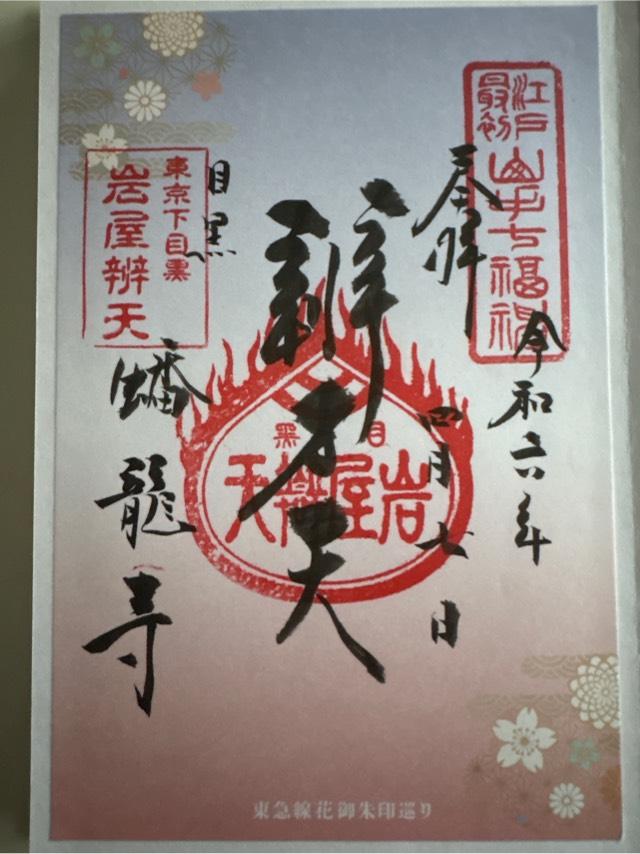 江戸
最初
山手七福神
奉拝
令和六年
四月七日
辨才天
目黒
岩屋辨天
目黒
蟠龍寺
東京下目黒
岩屋辨天
東急線花御朱印巡り